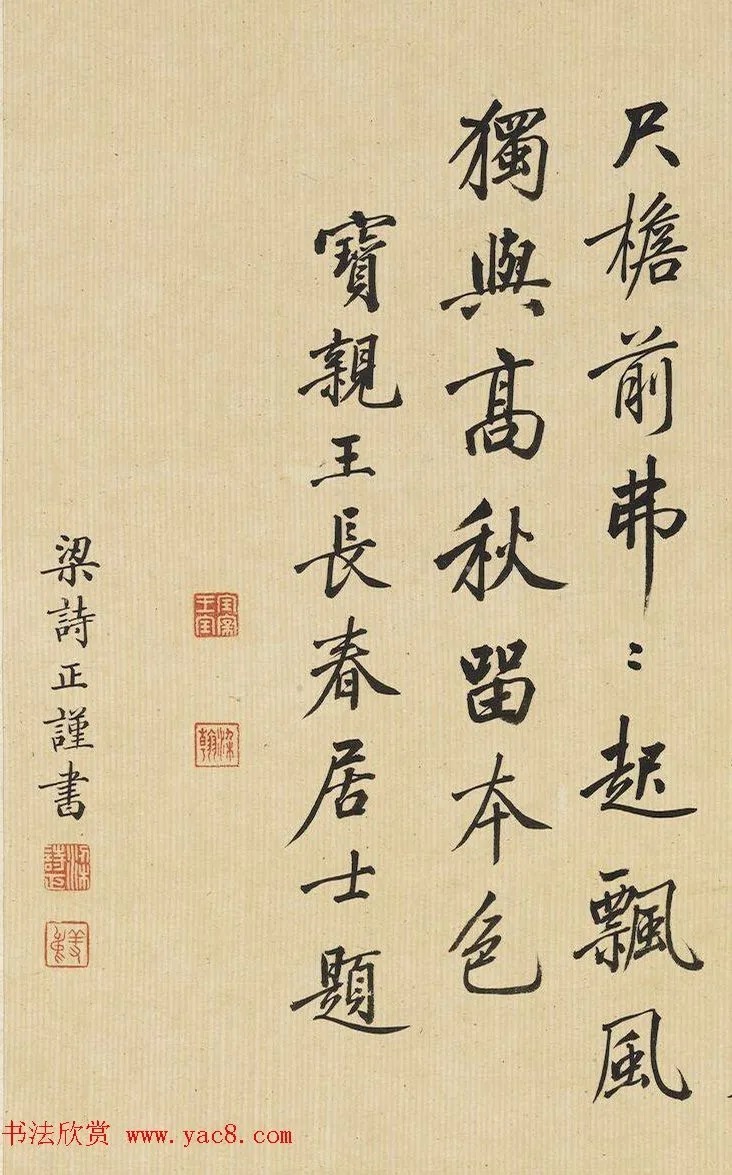 尺檐前弗〻起飘風
獨與髙秋留本色
寶親王長春居士題
梁詩正謹書
书法欣赏 www.yac8.com